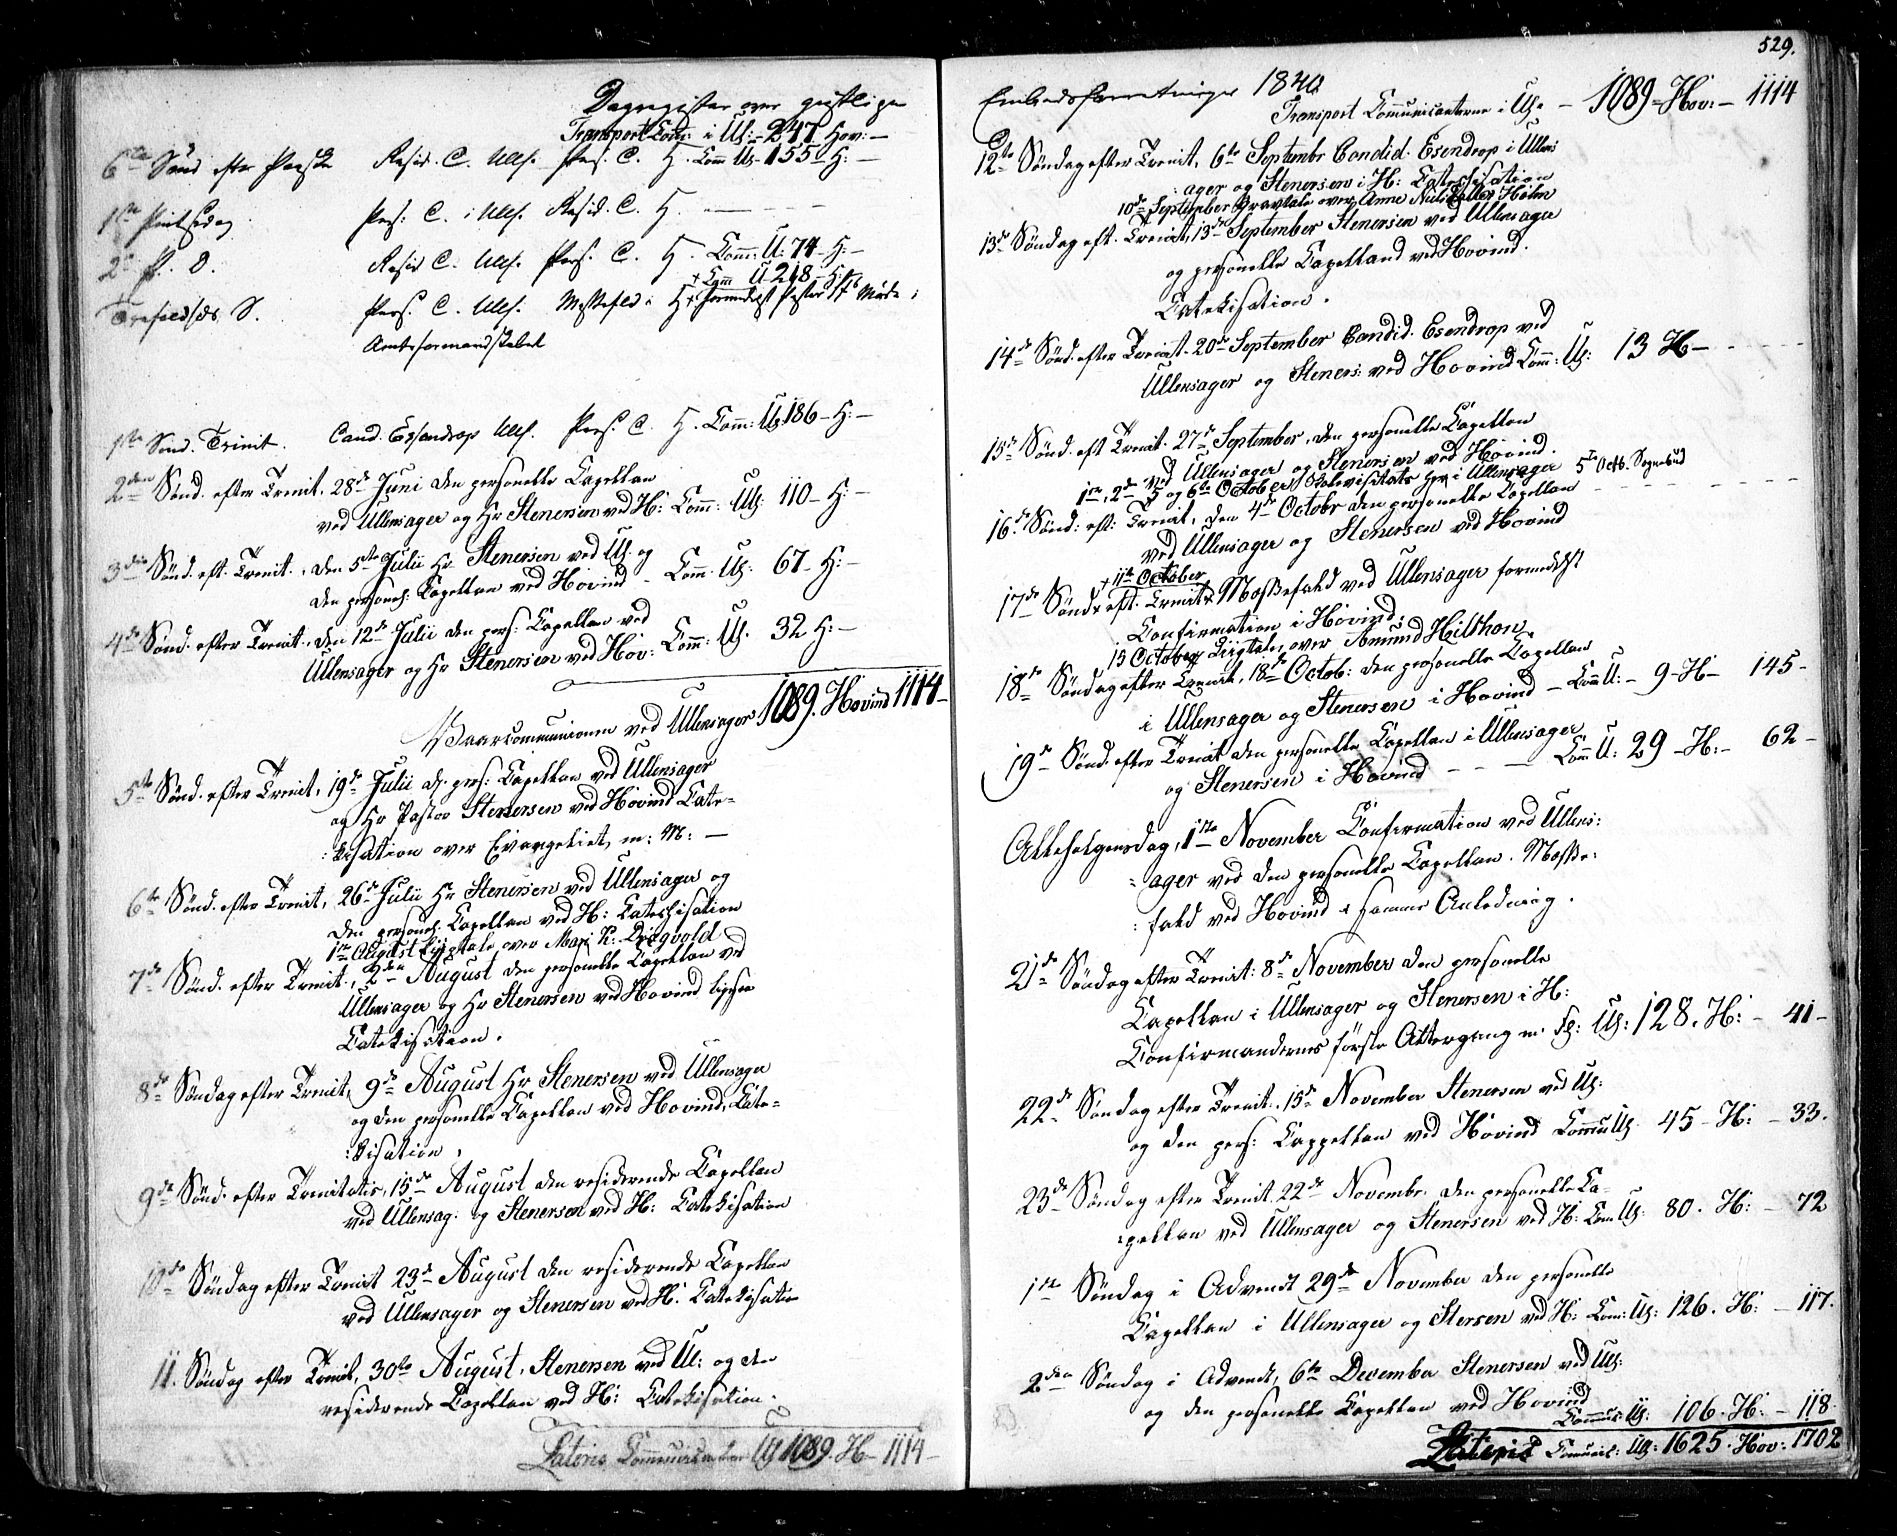 Dagregister over geistlige
Transport Com: i Ull: - 247 Hov: -
6te Sønd efter Paaske Resid. C. Ulls. Pers. C. H. Com Ull - 155 H: -
1ste Pintsedag Pers: C. i Ulls. Resid. C. H.
2 P. D. Resid C. Ulls. Pers. C. H. Com: U: 74 - H: -
+ Com U 218 - H:
Trefoldheds S. Pers. C. Ulls. Messefald i H + formedelst Møde i
Amtsformandskabet
1ste Sønd. Trinit. Cand. Esendrop Ulls. Pers. C. H. Com: Ull 186 - H: -
2den Sønd. efter Trinit. 28de Junii den personelle Capellan
ved Ullensager og Hr Stenersen ved H: Com: Ull. 110 - H: -
3die Sønd. eft. Trinit., den 5te Julii Hr Stenersen ved Ull. og
den personel: Capellan ved Hovind - Com: Ull: 67 - H: -
4de Sønd. efter Trinit., den 12te Julii den pers: Capellan ved
Ullensager og Hr Stenersen ved Hov: Com: Ull. 32 H: -
Vaarcommunionen ved Ullensager 1089. Hovind 1114 -
5te Sønd. efter Trinit, 19de Julii d: pers: Capellan ved Ullensager
og Hr Pastor Stenersen ved Hovind Cate=
:kisation over Evangeliet, m: M: -
6te Sønd. efter Trinit, 26de Julii Hr Stenersen ved Ullensager og
den personel: Capellan ved H: Catechisation
1ste August Liigtale over Mari K: Diegvold
7de Sønd. efter Trinit., 2den August den personelle Capellan ved
Ullensager og Hr Stenersen ved Hovind ligesaa
Catekisation.
8de Søndag efter Trinit, 9de August Hr Stenersen ved Ullensager
og den personelle Capellan ved Hovind, Cate=
:kisation.
9de Sønd. efter Trinitatis, 15de August den residerende Capellan
ved Ullensag. og Stenersen ved H: Catekisation
10de Søndag efter Trinit 23de August den residerende Capellan
ved Ullensager og Stenersen ved H. Catekisation
11. Søndag efter Trinit, 30te August, Stenersen ved Ul: og den
residerende Capellan ved H: Catekisation.
Lateris Communicanter Ull 1089. H - 1114 -
529.
Embedsforretninger 1840
Transport Communicanterne i Ull. - 1089 - Hov: - 1114
12te Søndag efter Trinit, 6te Septembr Candid. Esendrop i Ullens
:ager og Stenersen i H: Catechisation
10de September Gravtale over Anne Holm
13de Søndag eft. Trinit, 13de September Stenersen ved Ullensager
og personelle Capelland ved Hovind.
Catekisation.
14de Sønd. efter Trinit. 20de September Candid. Esendrop ved
Ullensager og Steners: ved Hovind Com: Ull: 13 H -
15de Sønd. eft Trinit. 27de September, den personelle Capellan
ved Ullensager og Stenersen ved Hovind.
1ste, 2de 5 og 6te October i Ullensager 5te Octb. Sognebud
16de Sønd: eft: Trinit, den 4de Octobr den personelle Capellan
ved Ullensager og Stenersen ved Hovind
+ 11te October
17de Sønd. eft. Trinit + Messefald ved Ullensager formedelst
Confirmation i Hovind;
15 October Liigtale, over Amund Hilthon
18de Søndag efter Trinit, 18de Octob: den personelle Capellan
i Ullensager og Stenersen i Hovind - Com U: - 9 - H - 145 -
19de Sønd. efter Trinit den personelle Capellan i Ullensager
og Stenersen i Hovind - - - Com U: 29 - H: - 62 -
Allehelgensdag, 1ste November Confirmation ved Ullens:
:ager ved den personelle Capellan. Messe:
:fald ved Hovind i samme Anledning.
21de Søndag efter Trinit: 8de November den personelle
Capellan i Ullensager og Stenersen i H:
Confirmandernes første Altergang m: Fl: Ull: 128. H: - 41 -
22de Søndag efter Trinit. 15de November Stenersen ved Ull:
og den pers: Cappellan ved Hovind Commu Ull. 45 - H: - 33.
23de Søndag efter Trinit. 22de Novembr. den personelle Ca=
:pellan ved Ullensager og Stenersen ved H: Com Ull. 80. H: - 72
1ste Søndag i Advendt 29de November den personelle
Capellan i Ullensager og Stersen ved H: Com: Ull: 126. H: - 117.
2den Søndag i Advendt, 6te December Stenersen ved Ull:
og den personelle Capellan ved Hovind
Commun: Ull: 106. H: - 118.
Lateris Comunic: Ull: 1625. Hov: 1702